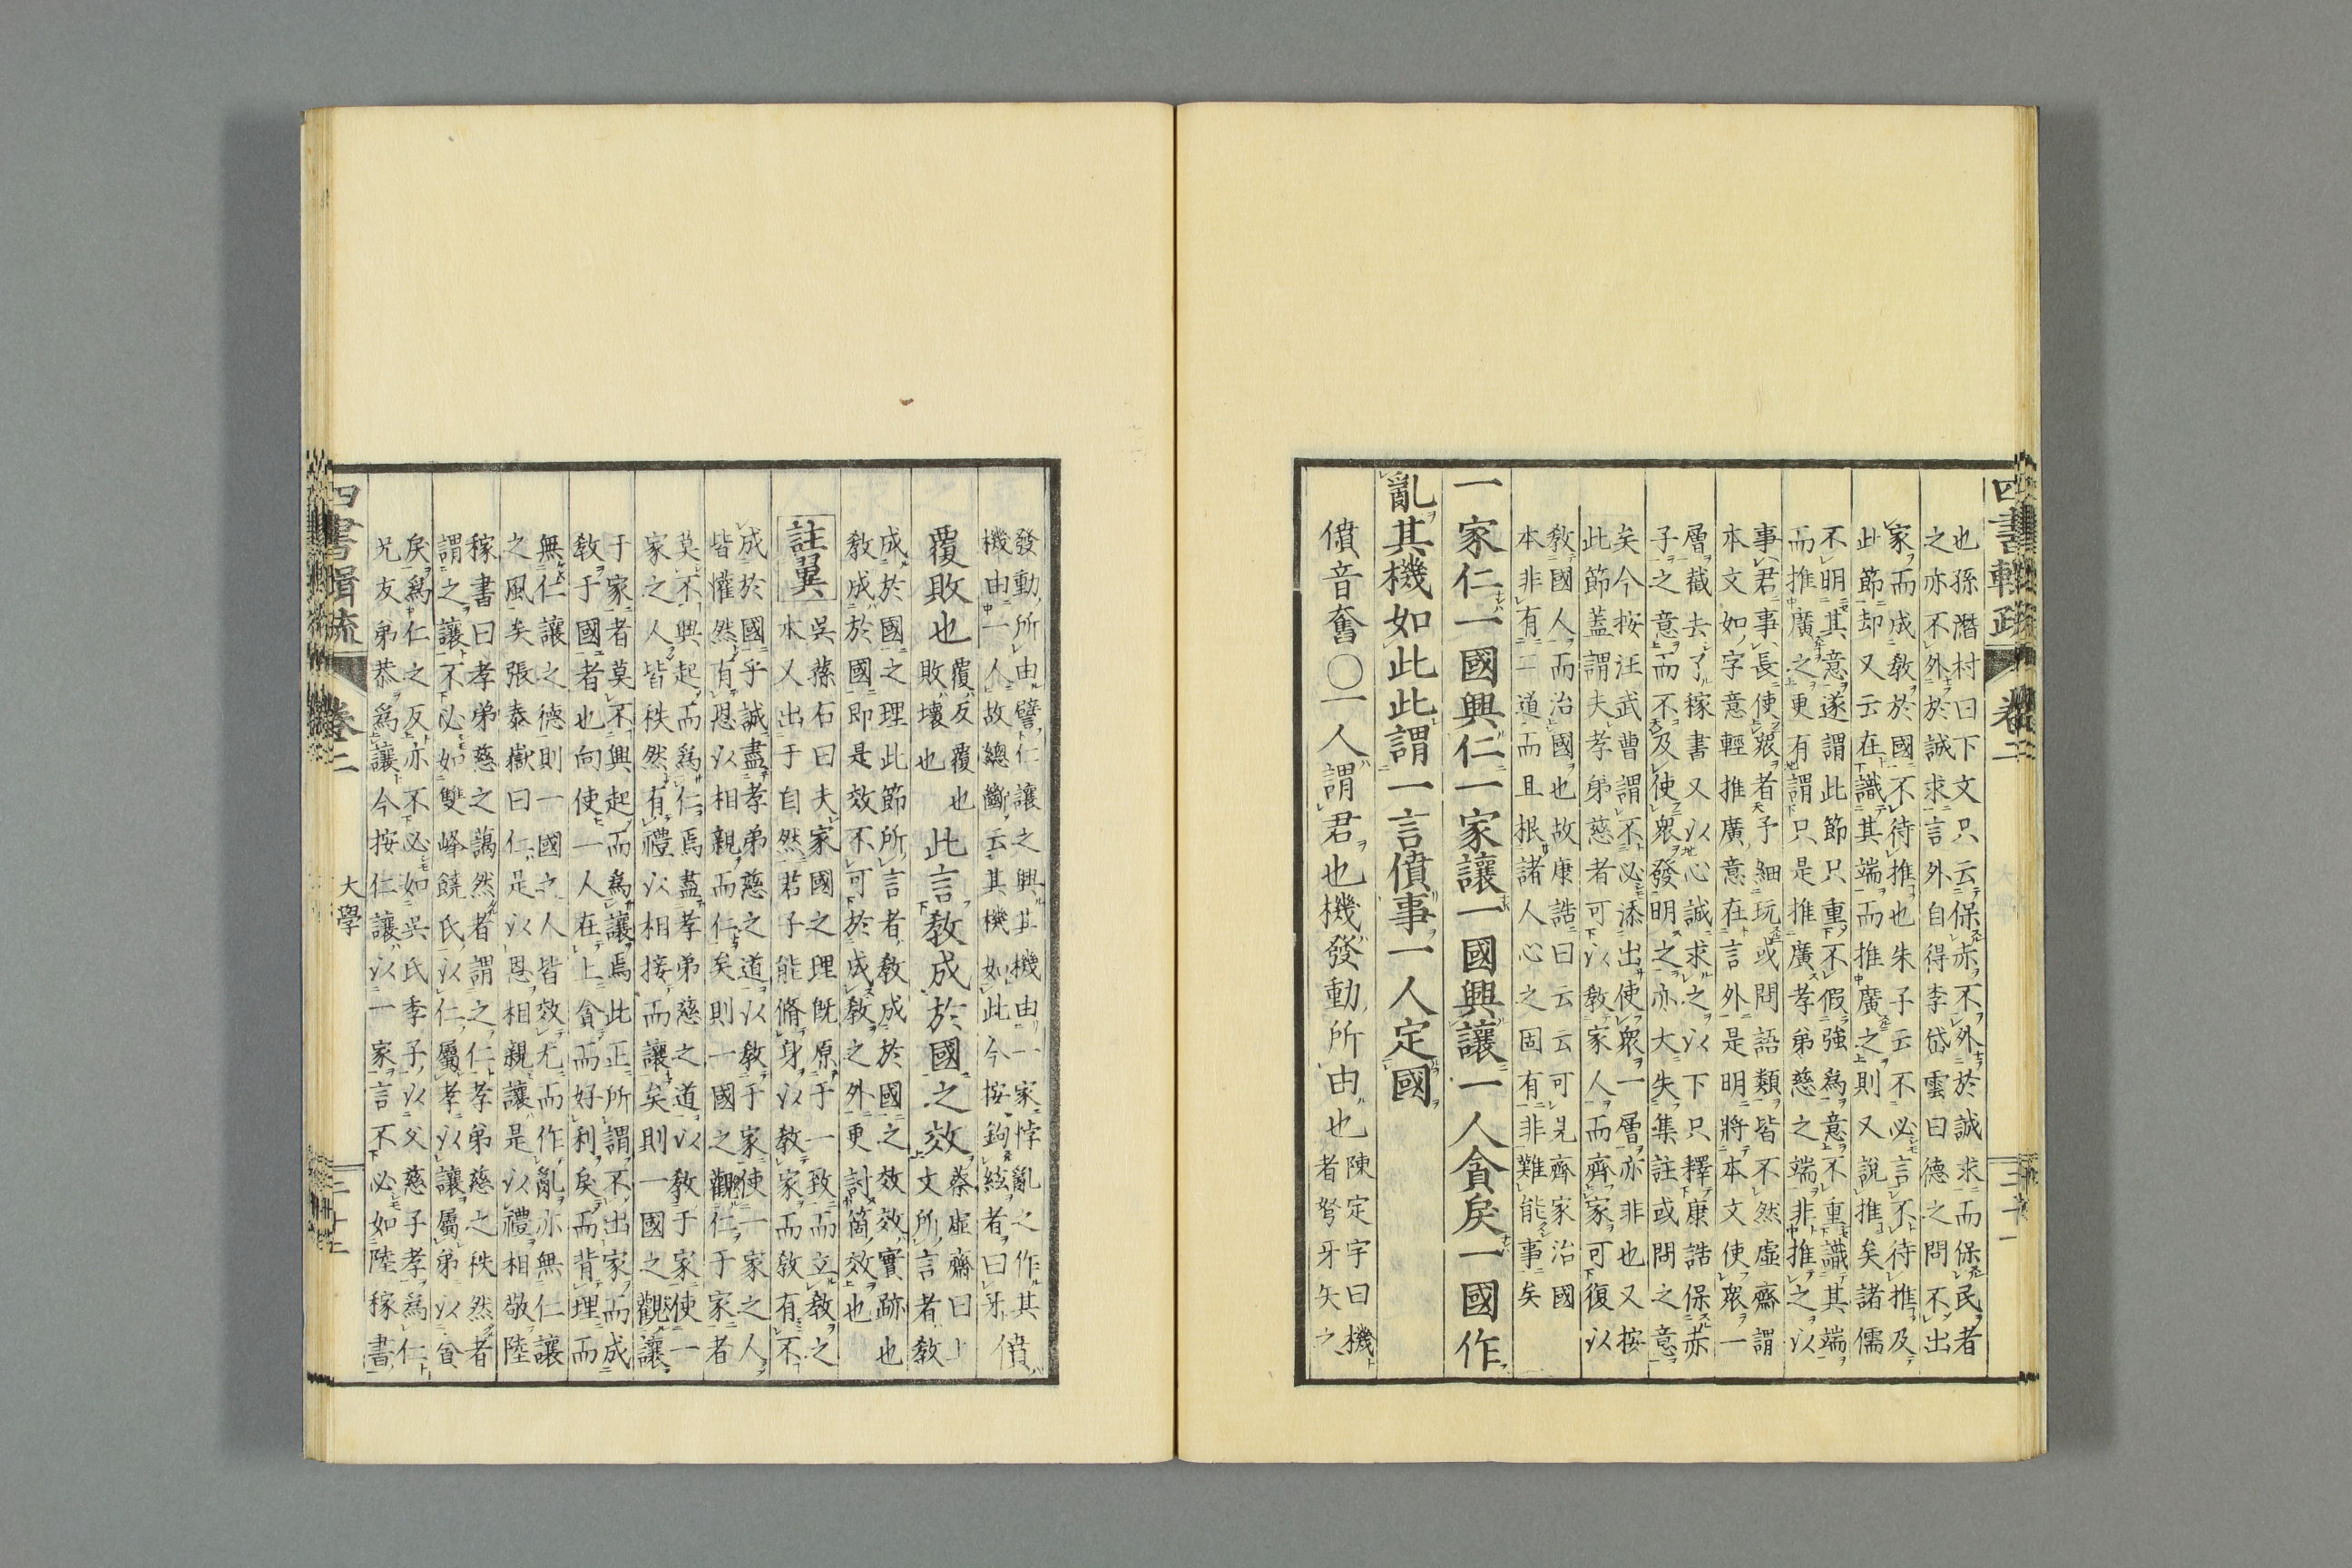 四書輯疏 卷二 三十一
也孫潛村曰下文只云保赤不外於誠求而保民者
之亦不外於誠求言外自得李岱雲曰德之問不出
家而成教於國不待推也朱子云不必言不待推及
此節却又云在識其端而推廣之則又說推矣諸儒
不明其意遂謂此節只重不假強為意不重識其端
而推廣之更有謂只是推廣孝弟慈之端非推之以
事君事長使衆者予細玩或問語類皆不然虛齋謂
本文如字意輕推廣意在言外是明將本文使衆一
層截去了稼書又以心誠求之以下只釋康誥保赤
子之意而不及使衆發明之亦大失集註或問之意
矣今按汪武曹謂不必添出使衆一層亦非也又按
此節蓋謂夫孝弟慈者可以教家人而齊家可復以
教國人而治國也故康誥曰云云可見齊家治國
本非有二道而且根諸人心之固有非難能事矣
一家仁一國興仁一家讓一國興讓一人貪戾一國作
亂其機如此此謂一言僨事一人定國
僨音奮○一人謂君也機發動所由也
陳定宇曰機
者弩牙矢之
發動所由譬仁讓之興其機由一家悖亂之作其
機由一人故總斷云其機如此今按鉤絃者曰牙
僨
覆敗也
覆反覆也
敗壞也
此言教成於國之效
蔡虛齋曰上
文所言者教
成於國之理此節所言者教成於國之效效實跡也
教成於國即是效不可於成教之外更討箇效也
註翼
吳蓀石曰夫家國之理既原于一致而立教之
本又出于自然君子能脩身以教家而教有不
成於國乎誠盡孝弟慈之道以教于家使一家之人
皆懽然有恩以相親而仁矣則一國之觀仁于家者
莫不興起而為仁焉盡孝弟慈之道以教于家使一
家之人皆秩然有禮以相接而讓矣則一國之觀讓
于家者莫不興起而為讓焉此正所謂不出家而成
教于國者也向使一人在上貪而好利戾而背理而
無仁讓之德則一國之人皆效尤而作亂亦無仁讓
之風矣張泰嶽曰仁是以恩相親讓是以禮相敬陸
稼書曰孝弟慈之藹然者謂之仁孝弟慈之秩然者
謂之讓不必如雙峰饒氏以仁屬孝以讓屬弟以貪
戾為仁之反亦不必如吳氏季子以父慈子孝為仁
兄友弟恭為讓今按仁讓以一家言不必如陸稼書
四書輯疏 卷二 大學 三十二